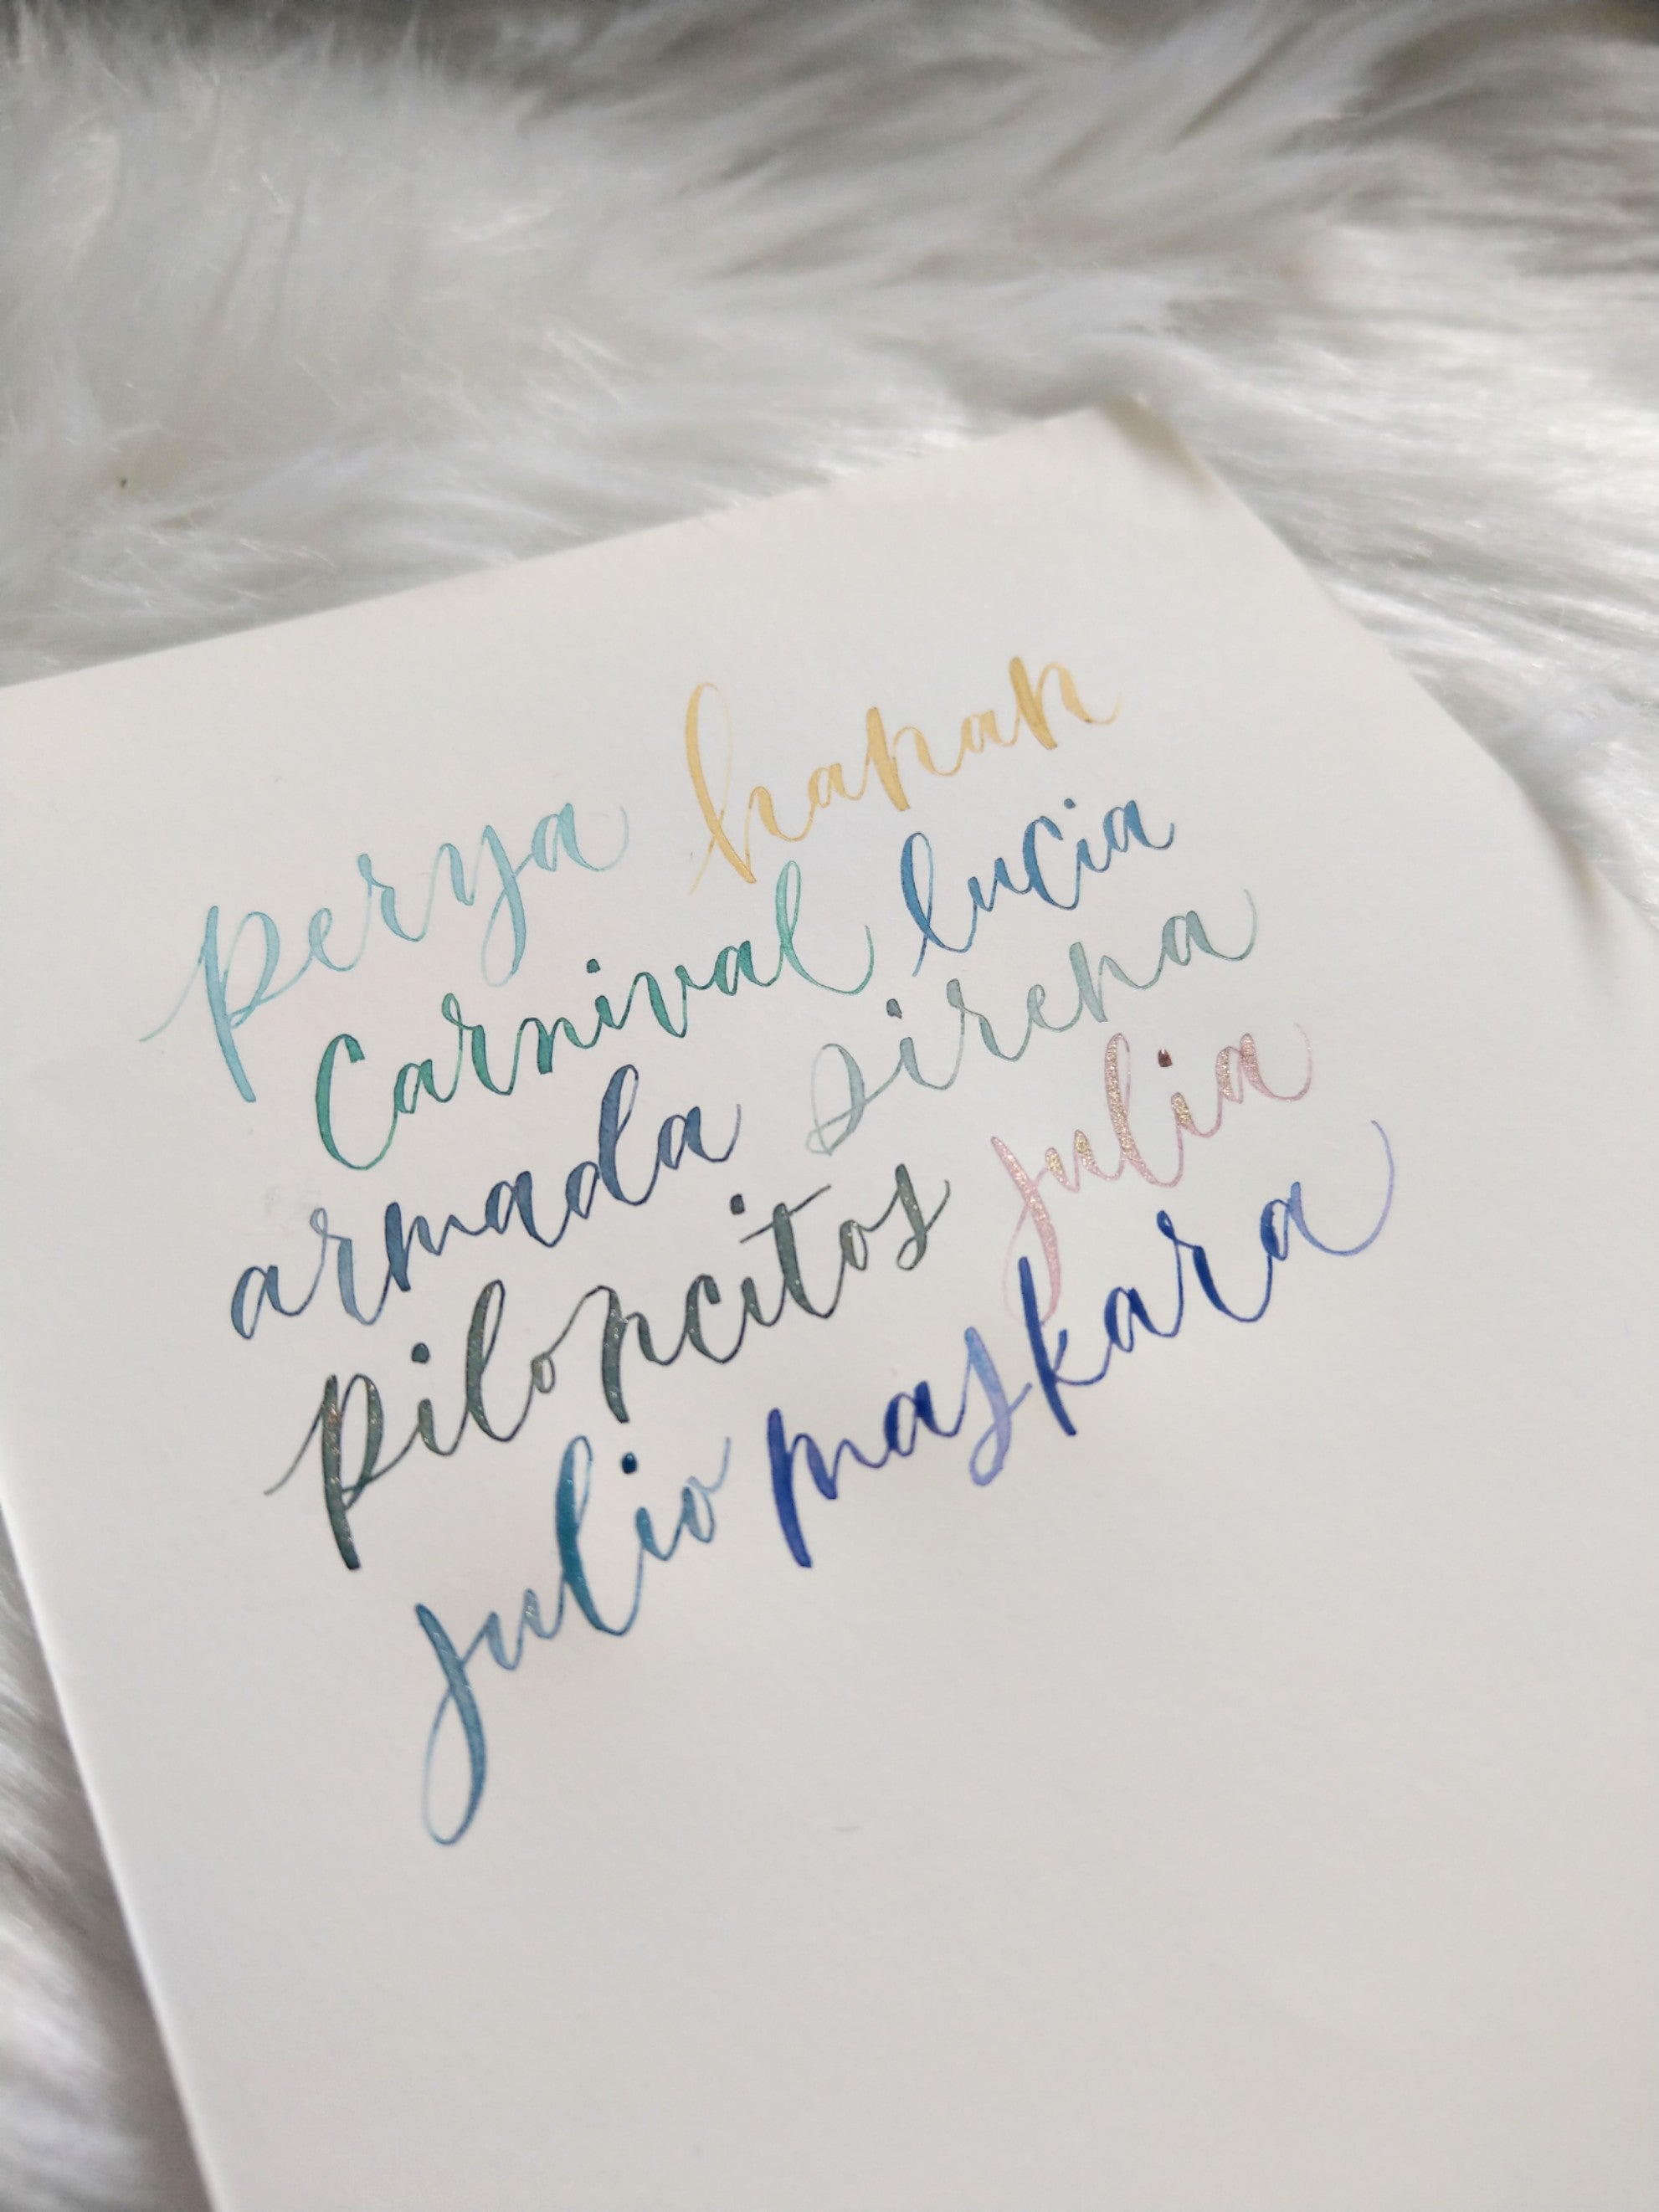 perya hanan
Carnival lucia
armada sirena
piloncitos julia
julio maskara